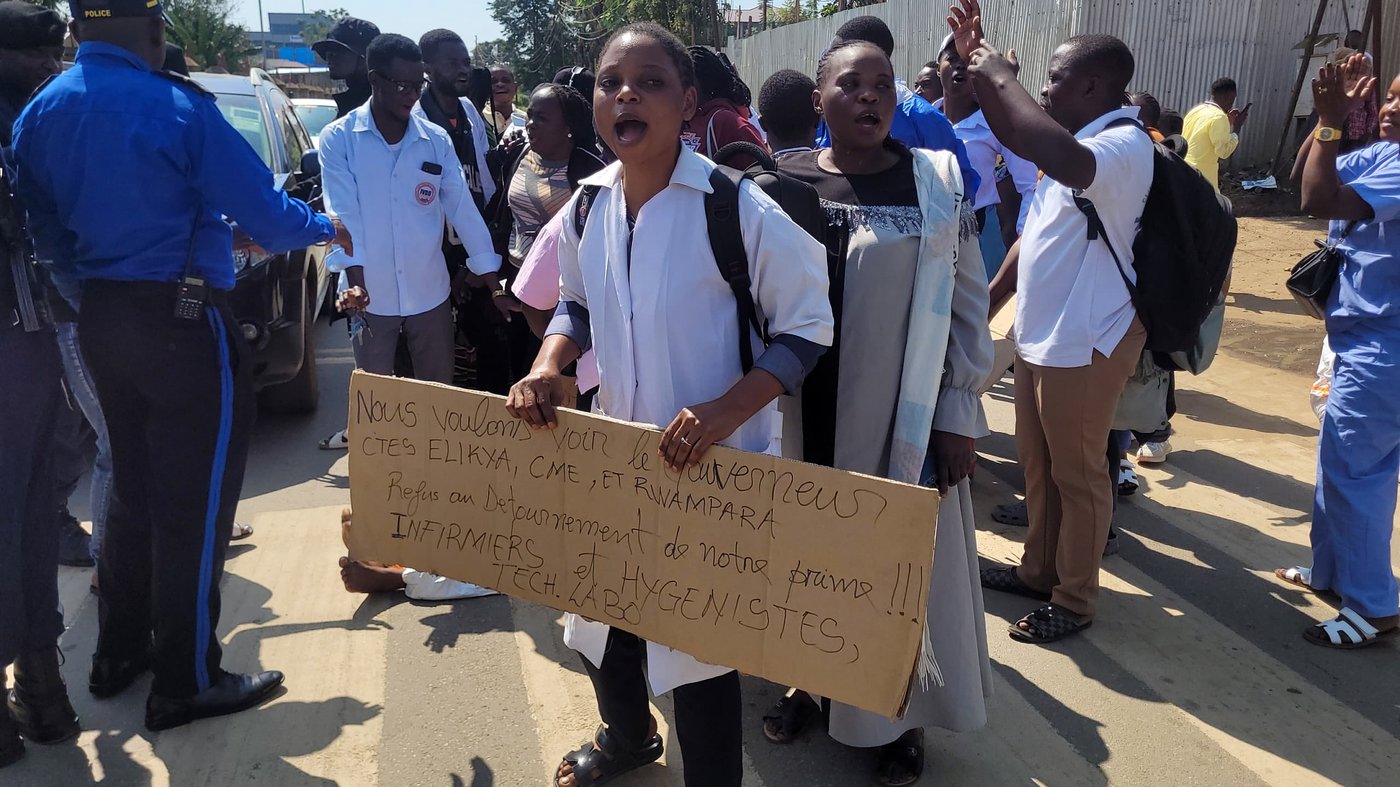 POLICE
Nous voulons voir le gouverneur
CTES ELIKYA, CME, ET RWAMPARA
Refus au Detournement de notre prime !!!
INFIRMIERS et HYGENISTES,
TECH. LABO